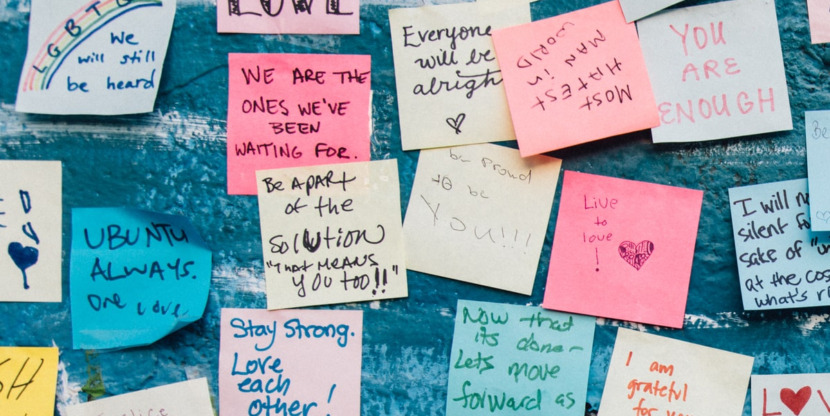 LGBTQ
We
will still
be heard
LOVE
WE ARE THE
ONES WE'VE
BEEN
WAITING FOR.
Everyone
will be
alright
MOST
HATEST
MAN in
WORLD
YOU
ARE
ENOUGH
BE APART
of the
SOLUTION
"THAT MEANS
YOU TOO!!"
be proud
to be
You!!!
Live
to
love
!
I will no
silent fo
sake of "un
at the cos
what's ri
UBUNTU
ALWAYS.
One Love.
Stay Strong.
Love
each
other!
Now that
its done -
Lets move
forward as
I am
grateful
for
SH
LO